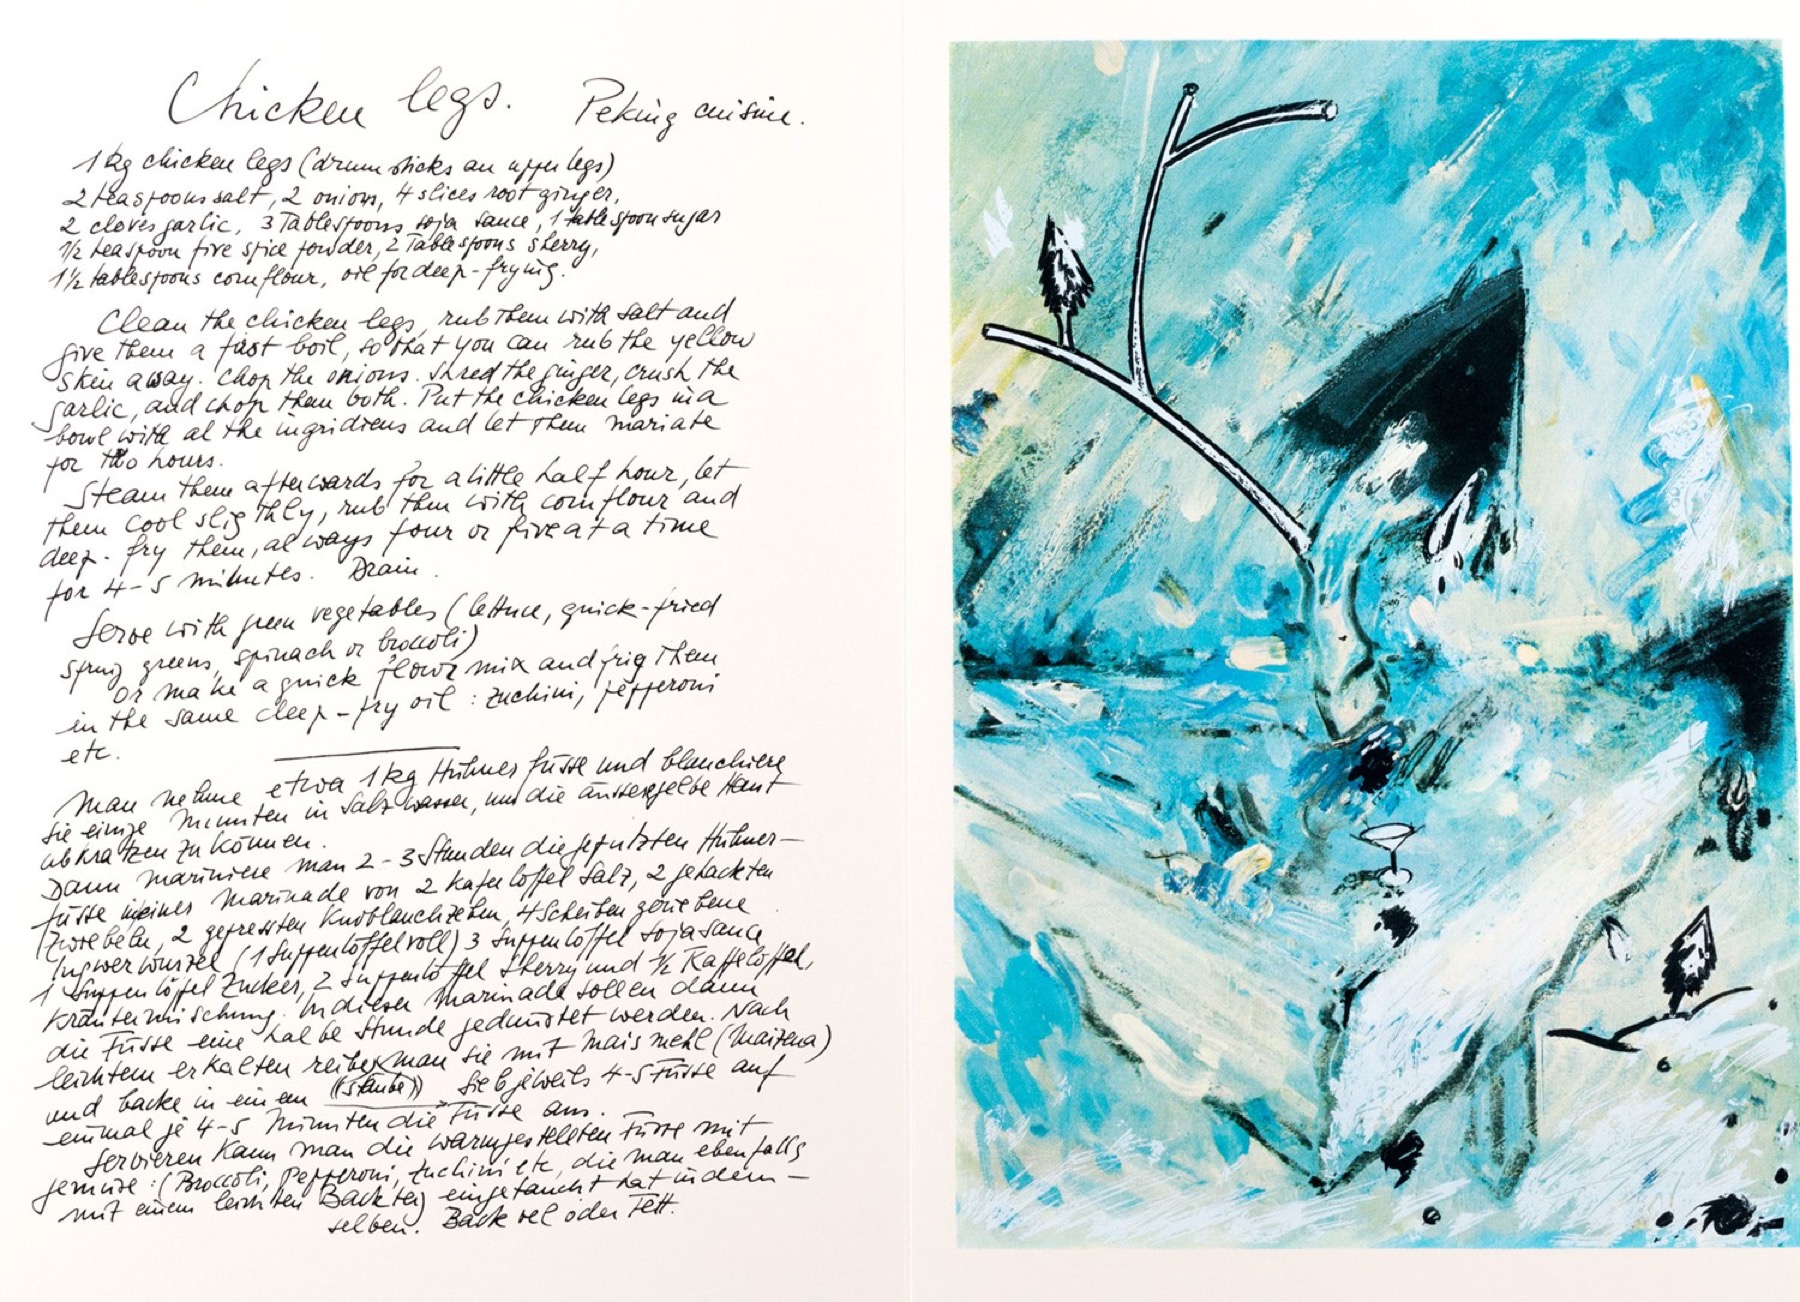 Chicken legs. Peking cuisine.
1 kg chicken legs (drum sticks an upper legs)
2 teaspoons salt, 2 onions, 4 slices root ginger,
2 cloves garlic, 3 Tablespoons soja sauce, 1 tablespoon sugar
1/2 teaspoon five spice powder, 2 Tablespoons sherry,
1 1/2 tablespoons cornflour, oil for deep-frying.
Clean the chicken legs, rub them with salt and
give them a fast boil, so that you can rub the yellow
skin away. Chop the onions. Shred the ginger, crush the
garlic, and chop them both. Put the chicken legs in a
bowl with al the ingridiens and let them mariate
for two hours.
Steam them afterwards for a little half hour, let
them cool sligthly, rub them with cornflour and
deep-fry them, always four or five at a time
for 4-5 minutes. Drain.
Serve with green vegetables (lettuce, quick-fried
spring greens, spinach or broccoli)
or make a quick flour mix and frig them
in the same deep-fry oil: zuchini, pepperoni
etc.
Man nehme etwa 1 kg Hühner füsse und blanchiere
sie einige Minuten in Salz wasser, um die äussere gelbe Haut
abkratzen zu können.
Dann mariniere man 2-3 Stunden die geputzten Hühner-
füsse in einer Marinade von 2 Kafeelöffel Salz, 2 gehackten
Zwiebeln, 2 gepressten Knoblauchzehen, 4 Scheiben geriebene
Ingwerwurzel (1 Suppenlöffel voll) 3 Suppenlöffel Sojasauce
1 Suppenlöffel Zucker, 2 Suppenlöffel Sherry und 1/2 Kaffelöffel,
Kräutermischung. In dieser Marinade sollen dann
die Füsse eine halbe Stunde gedünstet werden. Nach
leichtem erkalten reibe man sie mit Maismehl (Maizena)
und backe in einem ((stäube)) Sieb jeweils 4-5 Füsse auf
einmal je 4-5 Minuten die Füsse aus.
Servieren kann man die warmgestellten Füsse mit
gemüse: (Broccoli, Pepperoni, Zuchini etc, die man ebenfalls
mit einem leichten Backteig eingetaucht hat in dem-
selben. Back oel oder Fett.